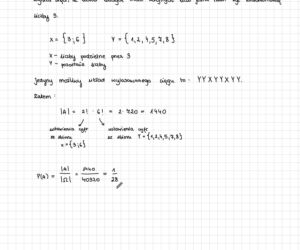 liczby 3.
X = {3;6}   Y = {1,2,4,5,7,8}
X - liczby podzielne przez 3
Y - pozostałe liczby
Jedyny możliwy układ wylosowanego ciągu to : YYXYYXYY.
Zatem :
|A| = 2! · 6! = 2 · 720 = 1440
ustawienie cyfr   ustawienie cyfr
ze zbioru   ze zbioru Y={1,2,4,5,7,8}
X={3;6}
P(A) = |A| / |Ω| = 1440 / 40320 = 1 / 28